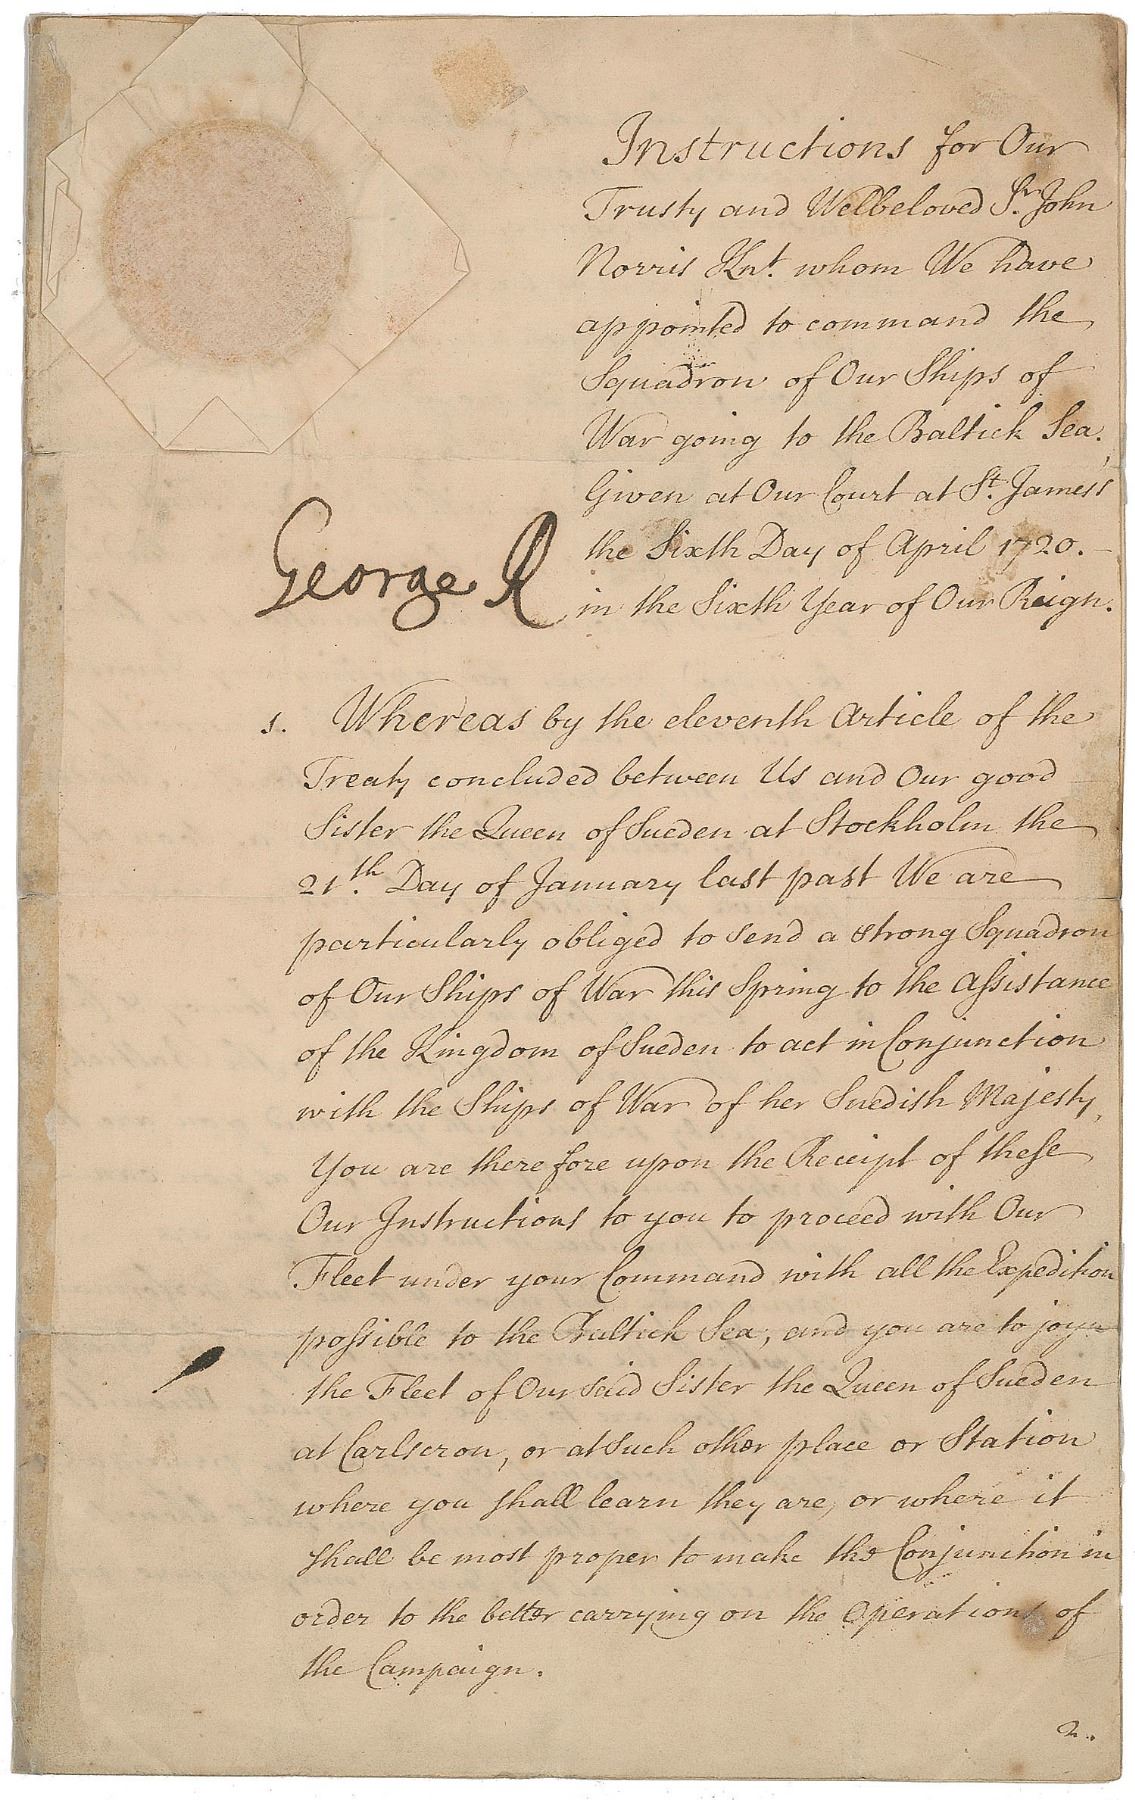 Instructions for Our
Trusty and Welbeloved Sr. John
Norris Knt. whom We have
appointed to command the
Squadron of Our Ships of
War going to the Baltick Sea.
Given at Our Court at St. James's
the Sixth Day of April 1720. –
in the Sixth Year of Our Reign.
George R
1. Whereas by the eleventh Article of the
Treaty concluded between Us and Our good
Sister the Queen of Sueden at Stockholm the
21th. Day of January last past We are
particularly obliged to send a strong Squadron
of Our Ships of War this Spring to the Assistance
of the Kingdom of Sueden to act in Conjunction
with the Ships of War of her Suedish Majesty,
You are therefore upon the Receipt of these
Our Instructions to you to proceed with Our
Fleet under your Command with all the Expedition
possible to the Baltick Sea, and you are to joyn
the Fleet of Our said Sister the Queen of Sueden
at Carlscron, or at such other place or Station
where you shall learn they are, or where it
shall be most proper to make the Conjunction in
order to the better carrying on the Operations of
the Campaign.
2.